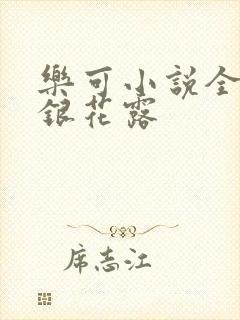 樂可小說全
銀花露
席志江